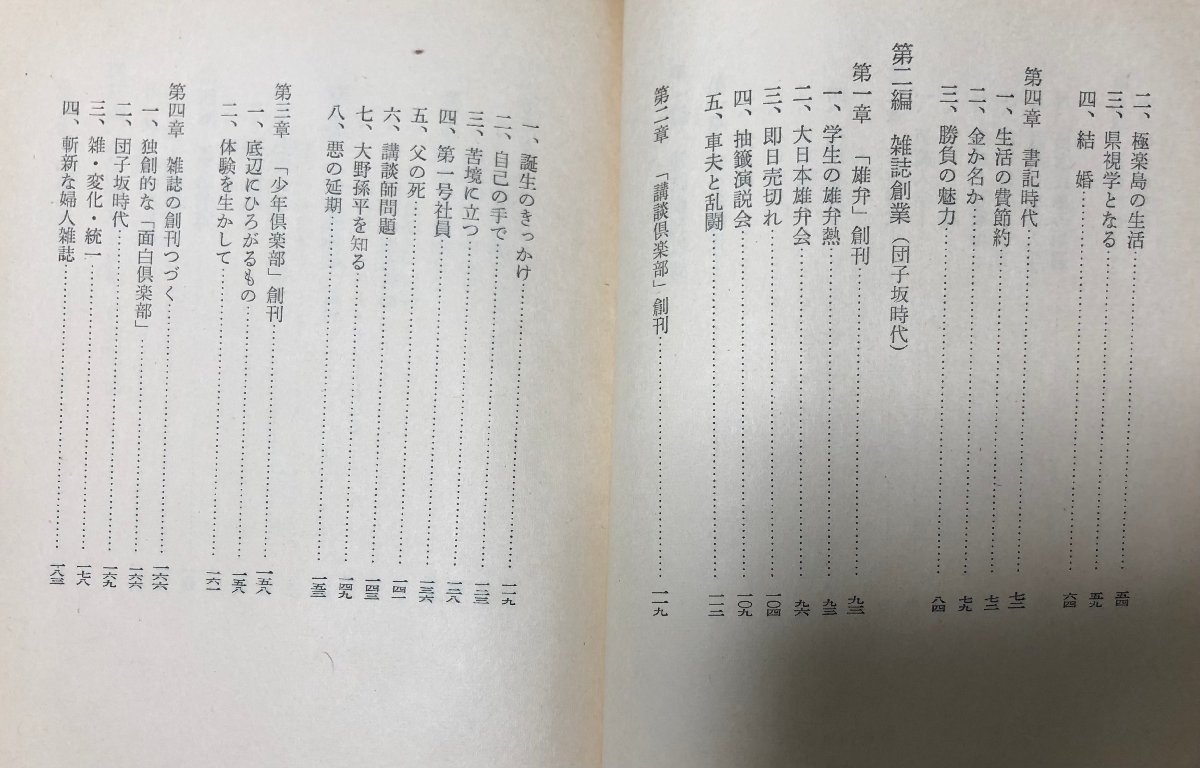 二、極楽島の生活……五四
三、県視学となる……五九
四、結　婚……六四
第四章　書記時代……七二
一、生活の費節約……七二
二、金か名か……七九
三、勝負の魅力……八四
第二編　雑誌創業（団子坂時代）
第一章　「雄弁」創刊……九三
一、学生の雄弁熱……九三
二、大日本雄弁会……九六
三、即日売切れ……一〇四
四、抽籤演説会……一〇九
五、車夫と乱闘……一一二
第二章　「講談倶楽部」創刊……一一九
一、誕生のきっかけ……一一九
二、自己の手で……一二三
三、苦境に立つ……一二八
四、第一号社員……一三六
五、父の死……一四一
六、講談師問題……一四三
七、大野孫平を知る……一四九
八、悪の延期……一五三
第三章　「少年倶楽部」創刊……一五八
一、底辺にひろがるもの……一五八
二、体験を生かして……一六一
第四章　雑誌の創刊つづく……一六六
一、独創的な「面白倶楽部」……一六六
二、団子坂時代……一六九
三、雑・変化・統一……一七八
四、斬新な婦人雑誌……一八三